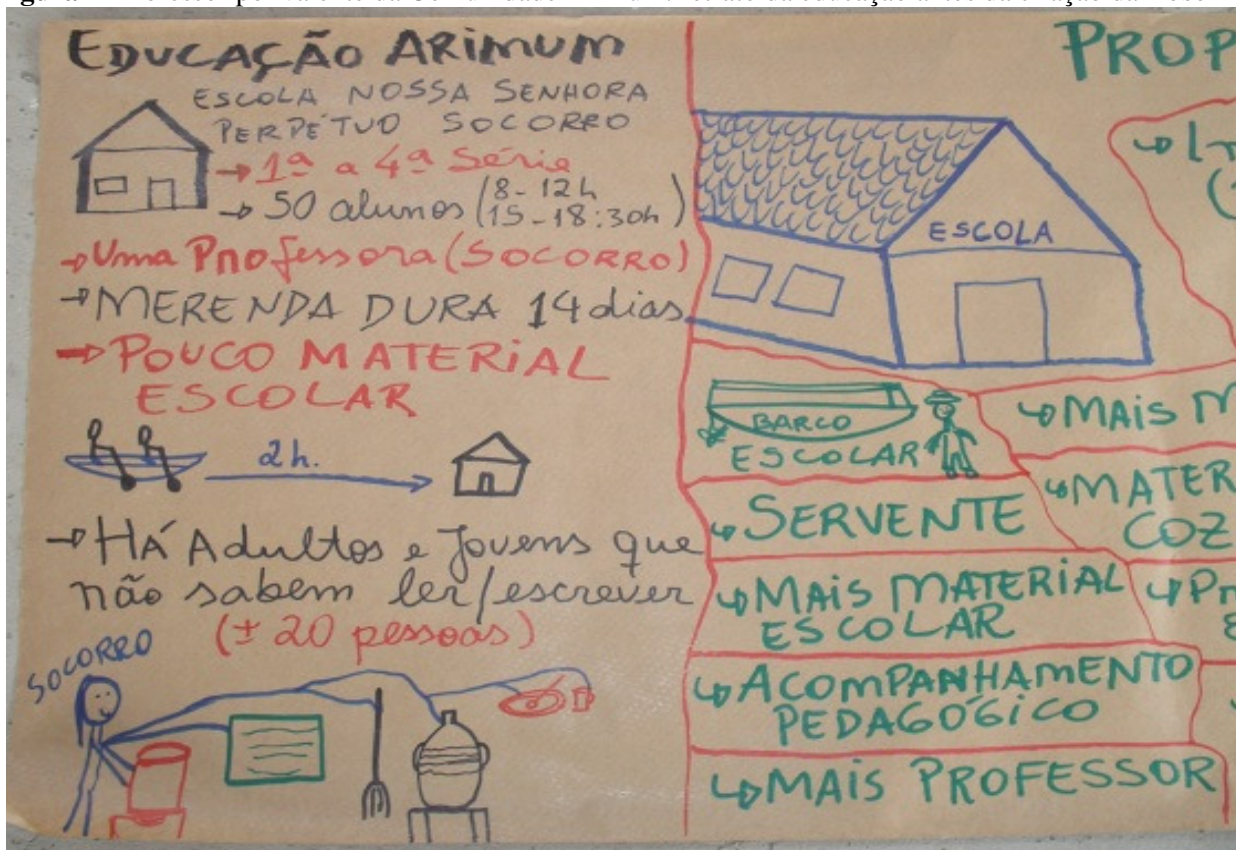 EDUCAÇÃO ARIMUM
ESCOLA NOSSA SENHORA
PERPÉTUO SOCORRO
→ 1ª a 4ª Série
→ 50 alunos (8-12h
15-18:30h)
→ Uma Professora (SOCORRO)
→ MERENDA DURA 14 dias
→ POUCO MATERIAL
ESCOLAR
2h.
→ HÁ Adultos e Jovens que
não sabem ler/escrever
(± 20 pessoas)
SOCORRO
PROP
ESCOLA
BARCO
ESCOLAR
↳ MAIS M
↳ SERVENTE
↳ MATER
COZ
↳ MAIS MATERIAL
ESCOLAR
↳ ACOMPANHAMENTO
PEDAGÓGICO
↳ MAIS PROFESSOR